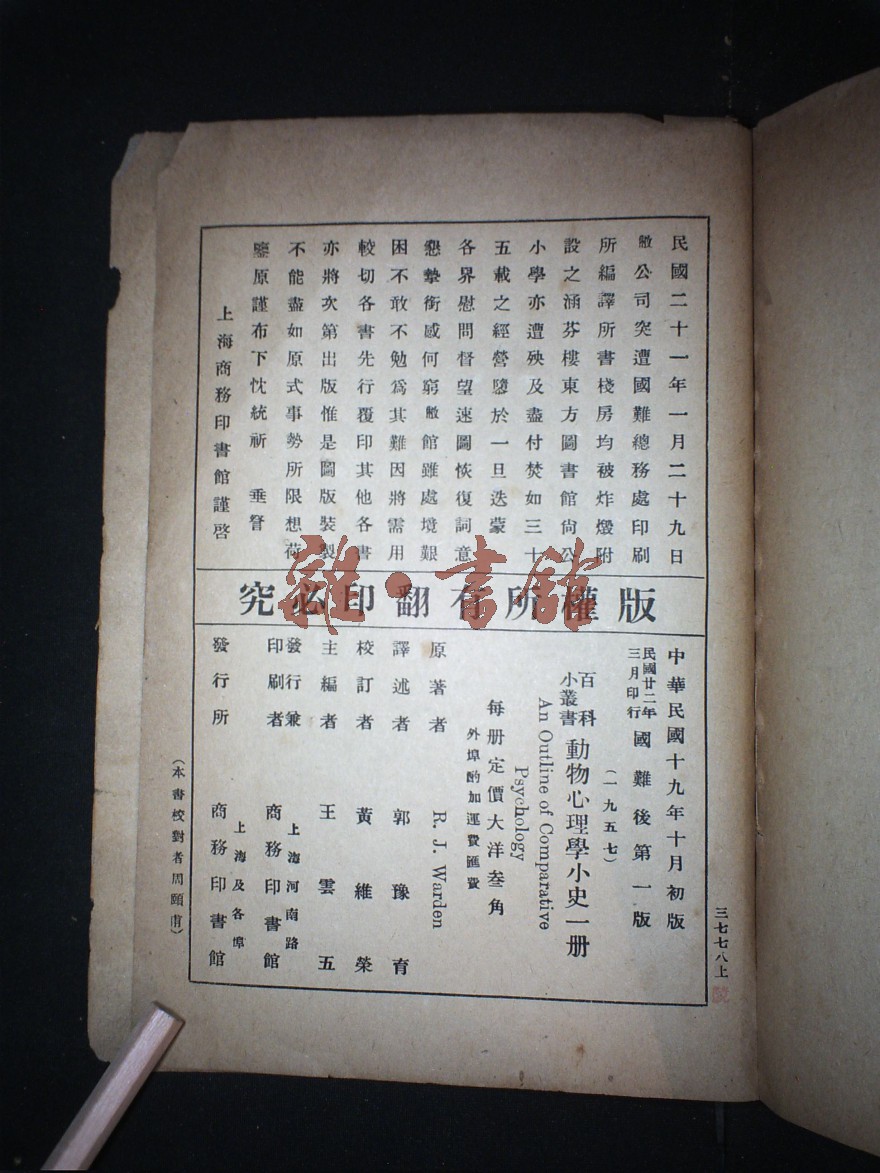 民國二十一年一月二十九日
敝公司突遭國難總務處印刷
所編譯所書棧房均被炸燬附
設之涵芬樓東方圖書館尚公
小學亦遭殃及盡付焚如三十
五載之經營隳於一旦迭蒙
各界慰問督望速圖恢復詞意
懇摯銜感何窮敝館雖處境艱
困不敢不勉為其難因將需用
較切各書先行覆印其他各書
亦將次第出版惟是圖版裝製
不能盡如原式事勢所限想荷
鑒原謹布下忱統祈 垂詧
上海商務印書館謹啓
版權所有翻印必究
中華民國十九年十月初版
民國廿二年三月印行 國難後第一版
(一九五七)
百科小叢書 動物心理學小史一册
An Outline of Comparative
Psychology
每册定價大洋叁角
外埠酌加運費匯費
原著者 R. J. Warden
譯述者 郭豫育
校訂者 黃維榮
主編者 王雲五
發行兼印刷者 上海河南路 商務印書館
發行所 上海及各埠 商務印書館
(本書校對者周頤甫)
三七七八上
雜·書館